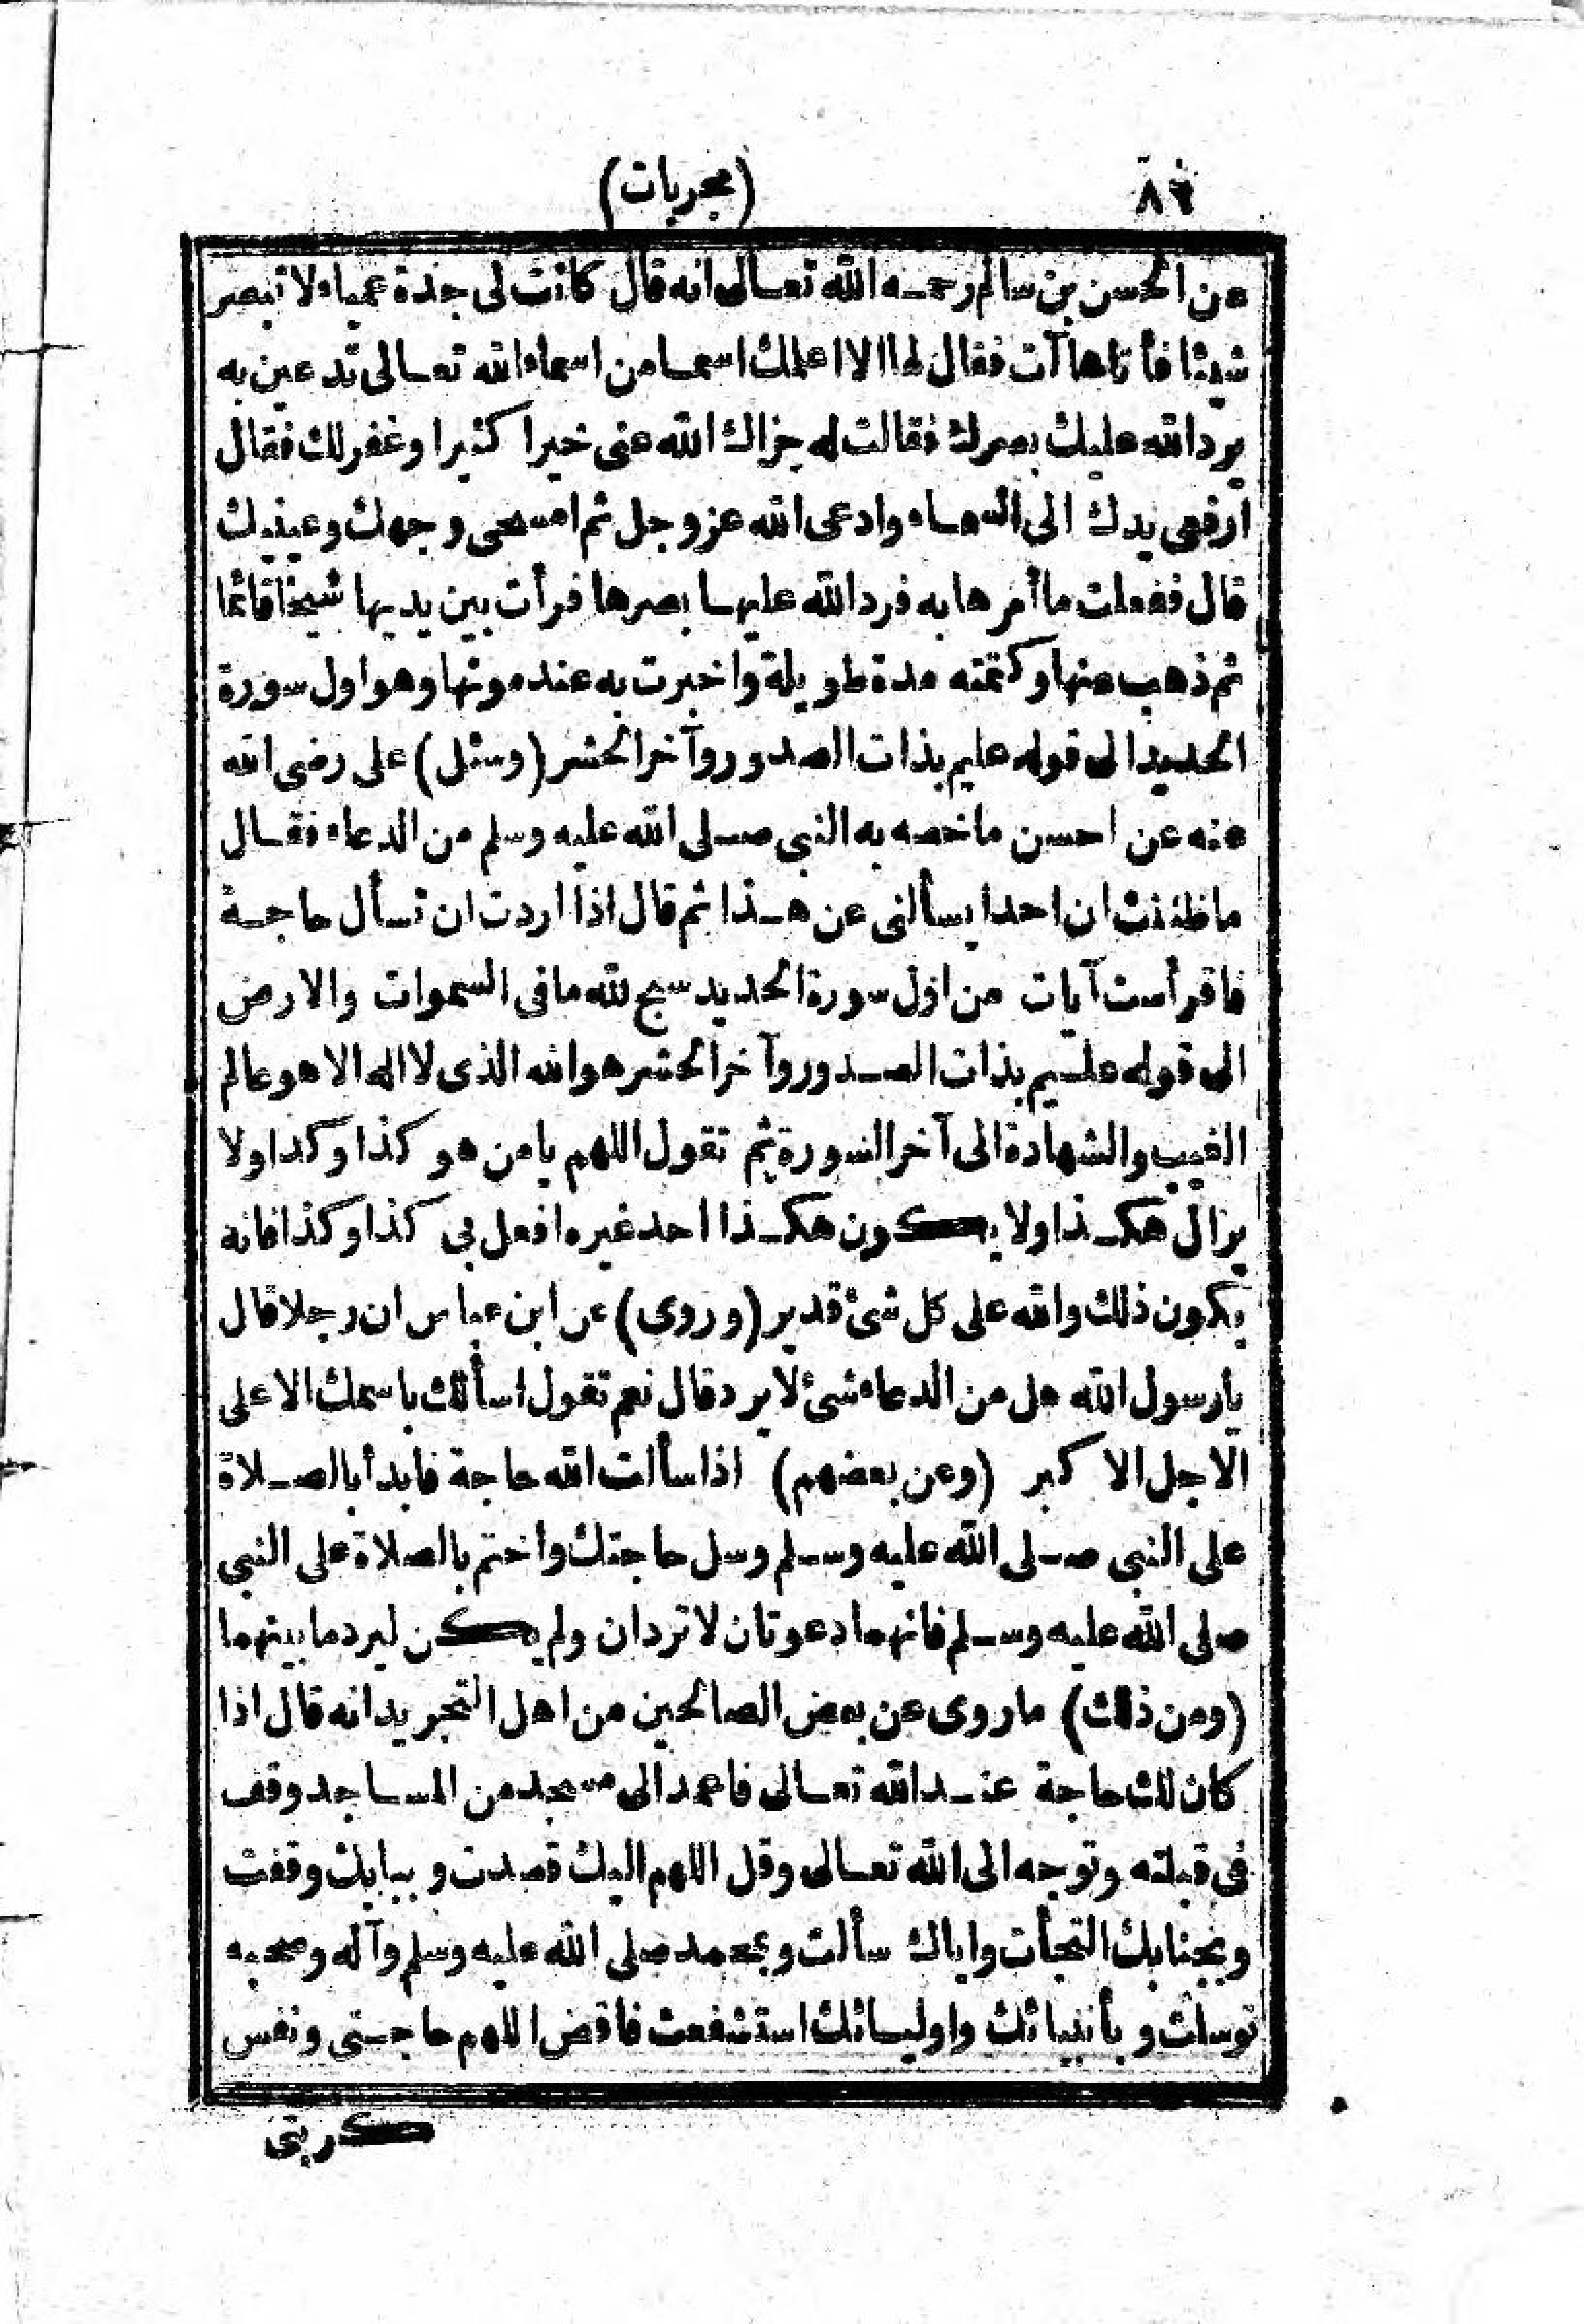 (مجربات)
عن الحسن بن سالم رحمه الله تعالى انه قال كانت لى جدة عمياء لا تبصر
شيئا فأتاها آت فقال لها الا اعلمك اسما من اسماء الله تعالى تدعين به
يرد الله عليك بصرك فقالت له جزاك الله عنى خيرا كثيرا وغفر لك فقال
ارفعى يدك الى السماء وادعى الله عز وجل ثم امسحى وجهك وعينيك
قال ففعلت ما أمرها به فرد الله عليها بصرها فرأت بين يديها شيخا قائما
ثم ذهب عنها وكتمته مدة طويلة واخبرت به عند موتها وهو اول سورة
الحديد الى قوله عليم بذات الصدور وآخر الحشر (وسئل) على رضى الله
عنه عن احسن ما خصه به النبى صلى الله عليه وسلم من الدعاء فقال
ما ظننت ان احدا يسألنى عن هذا ثم قال اذا اردت ان تسأل حاجة
فاقرأ ست آيات من اول سورة الحديد سبح لله ما فى السموات والارض
الى قوله عليم بذات الصدور وآخر الحشر هو الله الذى لا اله الا هو عالم
الغيب والشهادة الى آخر السورة ثم تقول اللهم يا من هو كذا وكذا ولا
يزال هكذا ولا يكون هكذا احد غيره افعل بى كذا وكذا فانه
يكون ذلك والله على كل شئ قدير (وروى) عن ابن عباس ان رجلا قال
يا رسول الله هل من الدعاء شئ لا يرد قال نعم تقول اسألك باسمك الاعلى
الاجل الاكبر (وعن بعضهم) اذا سألت الله حاجة فابدأ بالصلاة
على النبى صلى الله عليه وسلم وسل حاجتك واختم بالصلاة على النبى
صلى الله عليه وسلم فانهما دعوتان لا تردان ولم يكن ليرد ما بينهما
(ومن ذلك) ما روى عن بعض الصالحين من اهل التجريد انه قال اذا
كان لك حاجة عند الله تعالى فاعمد الى مسجد من المساجد وقف
فى قبلته وتوجه الى الله تعالى وقل اللهم اليك قصدت وببابك وقفت
وبجنابك التجأت واياك سألت وبمحمد صلى الله عليه وسلم وآله وصحبه
توسلت وبأنبيائك واوليائك استشفعت فاقض اللهم حاجتى ونفس
كربتى